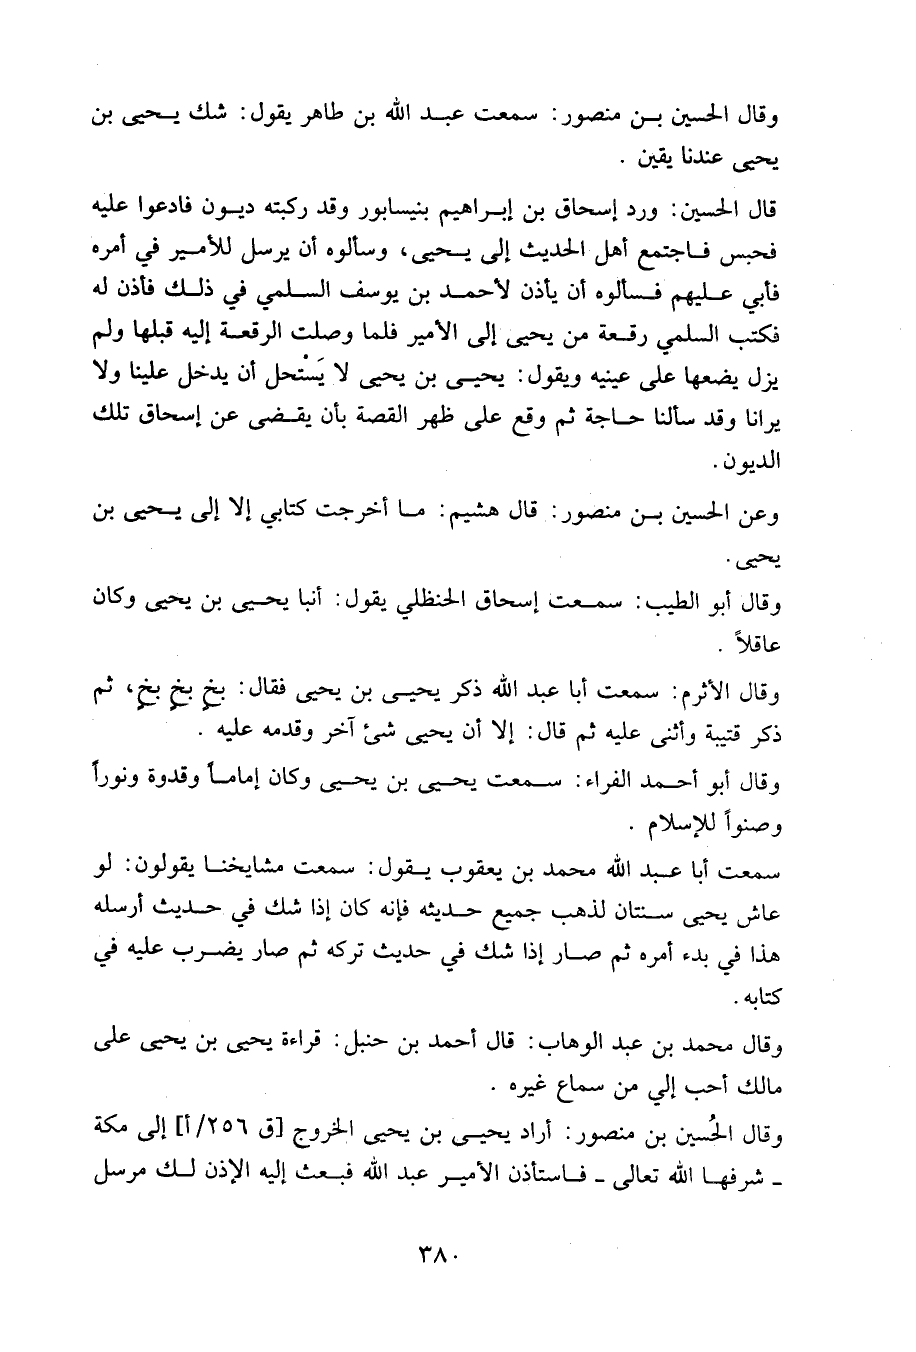 وقال الحسين بن منصور: سمعت عبد الله بن طاهر يقول: شك يحيى بن
يحيى عندنا يقين .
قال الحسين: ورد إسحاق بن إبراهيم بنيسابور وقد ركبته ديون فادعوا عليه
فحبس فاجتمع أهل الحديث إلى يحيى، وسألوه أن يرسل للأمير في أمره
فأبي عليهم فسألوه أن يأذن لأحمد بن يوسف السلمي في ذلك فأذن له
فكتب السلمي رقعة من يحيى إلى الأمير فلما وصلت الرقعة إليه قبلها ولم
يزل يضعها على عينيه ويقول: يحيى بن يحيى لا يَسْتحل أن يدخل علينا ولا
يرانا وقد سألنا حاجة ثم وقع على ظهر القصة بأن يقضى عن إسحاق تلك
الديون.
وعن الحسين بن منصور: قال هشيم: ما أخرجت كتابي إلا إلى يحيى بن
يحيى.
وقال أبو الطيب: سمعت إسحاق الحنظلي يقول: أنبا يحيى بن يحيى وكان
عاقلاً .
وقال الأثرم: سمعت أبا عبد الله ذكر يحيى بن يحيى فقال: بخ بخ بخ، ثم
ذكر قتيبة وأثنى عليه ثم قال: إلا أن يحيى شئ آخر وقدمه عليه .
وقال أبو أحمد الفراء: سمعت يحيى بن يحيى وكان إماماً وقدوة ونوراً
وصنواً للإسلام .
سمعت أبا عبد الله محمد بن يعقوب يقول: سمعت مشايخنا يقولون: لو
عاش يحيى سنتان لذهب جميع حديثه فإنه كان إذا شك في حديث أرسله
هذا في بدء أمره ثم صار إذا شك في حديث تركه ثم صار يضرب عليه في
كتابه.
وقال محمد بن عبد الوهاب: قال أحمد بن حنبل: قراءة يحيى بن يحيى على
مالك أحب إلي من سماع غيره .
وقال الحُسين بن منصور: أراد يحيى بن يحيى الخروج [ق ٢٥٦/أ] إلى مكة
ـ شرفها الله تعالى ـ فاستأذن الأمير عبد الله فبعث إليه الإذن لك مرسل
٣٨٠